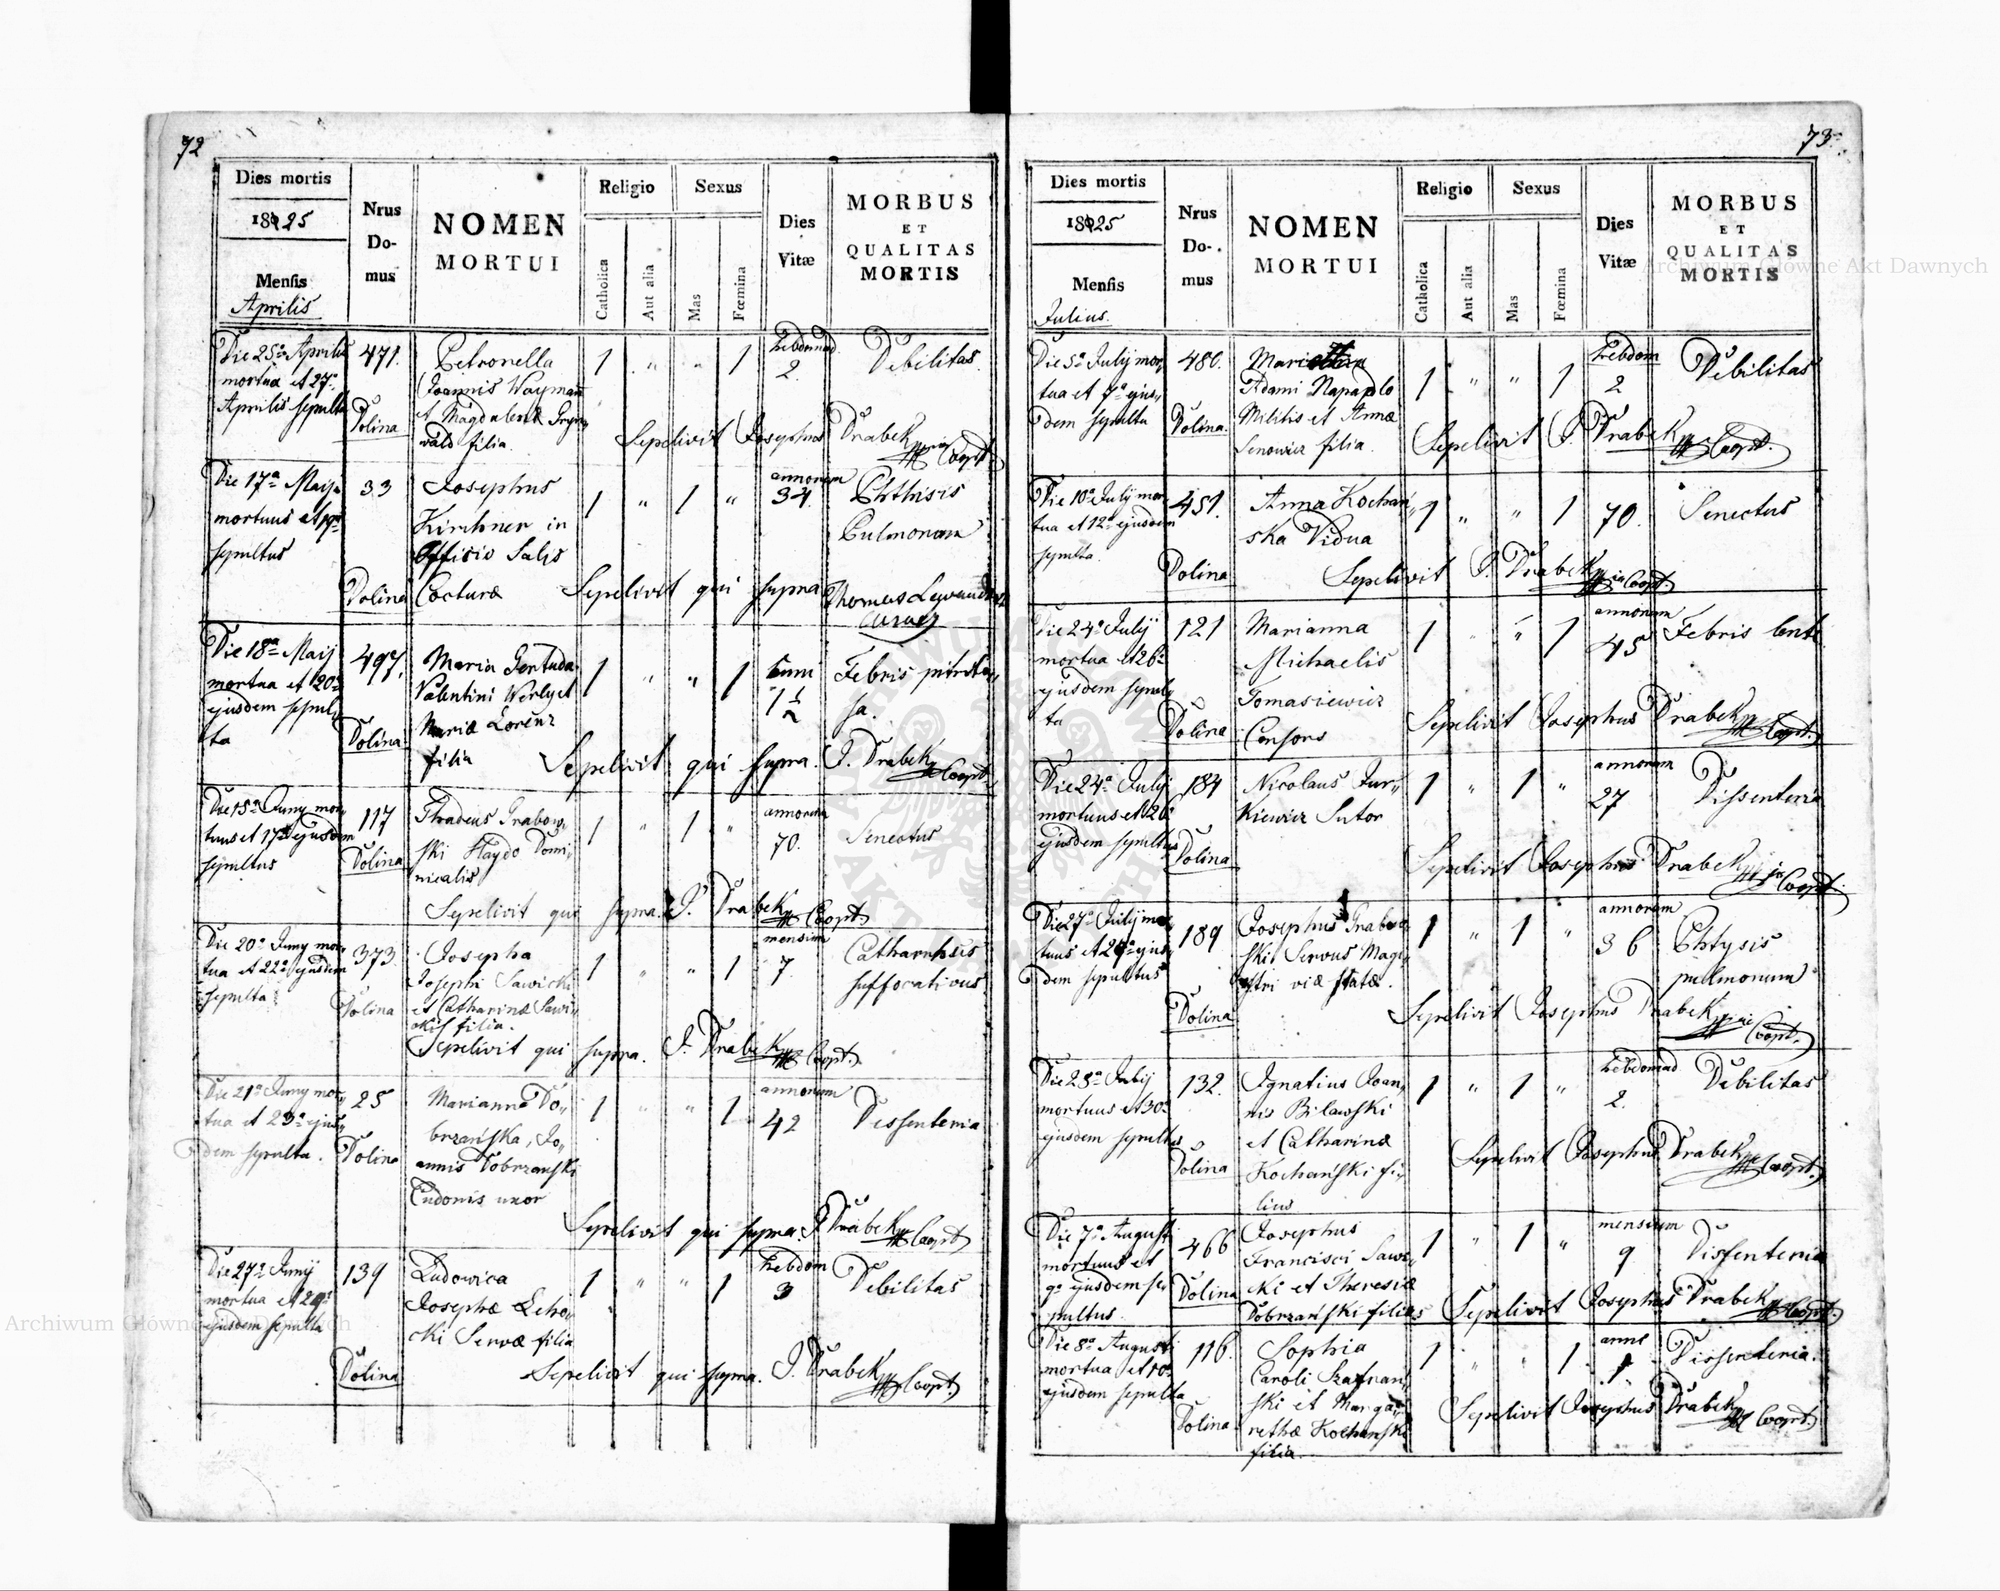 72
Dies mortis
1825
Mensis
Aprilis
Nrus
Do-
mus
NOMEN
MORTUI
Religio
Catholica
Aut alia
Sexus
Mas
Fœmina
Dies
Vitæ
MORBUS
ET
QUALITAS
MORTIS
Die 25a Aprilis
mortua et 27a
Aprilis sepulta
471.
Dolina
Petronella
Joannis Wayman
et Magdalenæ
wald filia
1 " " 1
hebdomad
2.
Debilitas
Sepelivit Josephus Drabek Coopt.
Die 17a Maij
mortuus et 19a
sepultus
33
Dolina
Josephus
Kirchner in
Officio Salis
Cocturæ
1 " 1 "
annorum
34.
Phthisis
Pulmonum
Sepelivit qui supra Thomas
Die 18a Maij
mortua et 20a
ejusdem sepul-
ta
497.
Dolina
Maria Gertuda
Valentini Werly et
Mariæ Lorenz
filia
1 " " 1
anni
1 1/2
Febris
sa.
Sepelivit qui supra. J. Drabek Coopt.
Die 15a Juny mor-
tuus et 17a ejusdem
sepultus
117
Dolina
Thadeus Grabow-
ski Haydo Domi-
nicalis
1 " 1 "
annorum
70.
Senectus
Sepelivit qui supra. J. Drabek Coopt.
Die 20a Juny mor-
tua et 22a ejusdem
sepulta
373
Dolina
Josepha
Josephi Sawicki
et Catharinæ Sawi-
ckis filia.
1 " " 1
mensium
7.
Catharrhsis
suffocativus
Sepelivit qui supra. J. Drabek Coopt.
Die 21a Juny mor-
tua et 23a ejus-
dem sepulta.
25
Dolina
Marianna Do-
brzańska, Jo-
annis Dobrzanski
Cudonis uxor
1 " " 1
annorum
42
Dissenteria
Sepelivit qui supra. J. Drabek Coopt.
Die 27a Junij
mortua et 29a
ejusdem sepulta
139
Dolina
Ludowica
Josephæ
cki Servæ filia
1 " " 1
hebdom
3
Debilitas
Sepelivit qui supra. J. Drabek Coopt.
73
Dies mortis
1825
Mensis
Julius.
Nrus
Do-
mus
NOMEN
MORTUI
Religio
Catholica
Aut alia
Sexus
Mas
Fœmina
Dies
Vitæ
MORBUS
ET
QUALITAS
MORTIS
Die 5a July mor-
tua et 7a ejus-
dem sepulta
480.
Dolina
Adami Napadlo
Militis et Annæ
Senowicz filia.
1 " " 1
hebdom
2
Debilitas
Sepelivit J. Drabek Coopt.
Die 10a July mor-
tua et 12a ejusdem
sepulta.
451.
Dolina
Anna Kochań-
ska Vidua
1 " " 1
70.
Senectus
Sepelivit J. Drabek Coopt.
Die 24a July
mortua et 26a
ejusdem sepul-
ta
121
Dolina
Marianna
Michaelis
Tomasiewicz
Consors
1 " " 1
annorum
45
Febris lenta
Sepelivit Josephus Drabek Coopt.
Die 24a July
mortuus et 26a
ejusdem sepultus
184
Dolina
Nicolaus Jur-
kiewicz Sutor
1 " 1 "
annorum
27
Dissenteria
Sepelivit Josephus Drabek Coopt.
Die 27a July mor-
tuus et 29a ejus-
dem sepultus
189
Dolina
Josephus Grabow-
ski Servus Magi-
stri viæ statæ.
1 " 1 "
annorum
36
Phtysis
pulmonum
Sepelivit Josephus Drabek Coopt.
Die 28a July
mortuus et 30a
ejusdem sepultus
132.
Dolina
Ignatius Joan-
nis Bilawski
et Catharinæ
Kochański fi-
lius
1 " 1 "
hebdomad
2.
Debilitas
Sepelivit Josephus Drabek Coopt.
Die 7a Augusti
mortuus et
9a ejusdem se-
pultus.
466
Dolina
Josephus
Francisci Sawi-
cki et Theresiæ
Dobrzański filius
1 " 1 "
mensium
9
Dissenteria
Sepelivit Josephus Drabek Coopt.
Die 8a Augusti
mortua et 10a
ejusdem sepulta
116.
Dolina
Sophia
Caroli Szafrań-
ski et Marga-
rethæ Kochański
filia.
1 " " 1
anni
1
Dissenteria.
Sepelivit Josephus Drabek Coopt.
Archiwum Główne Akt Dawnych
Archiwum Główne Akt Dawnych